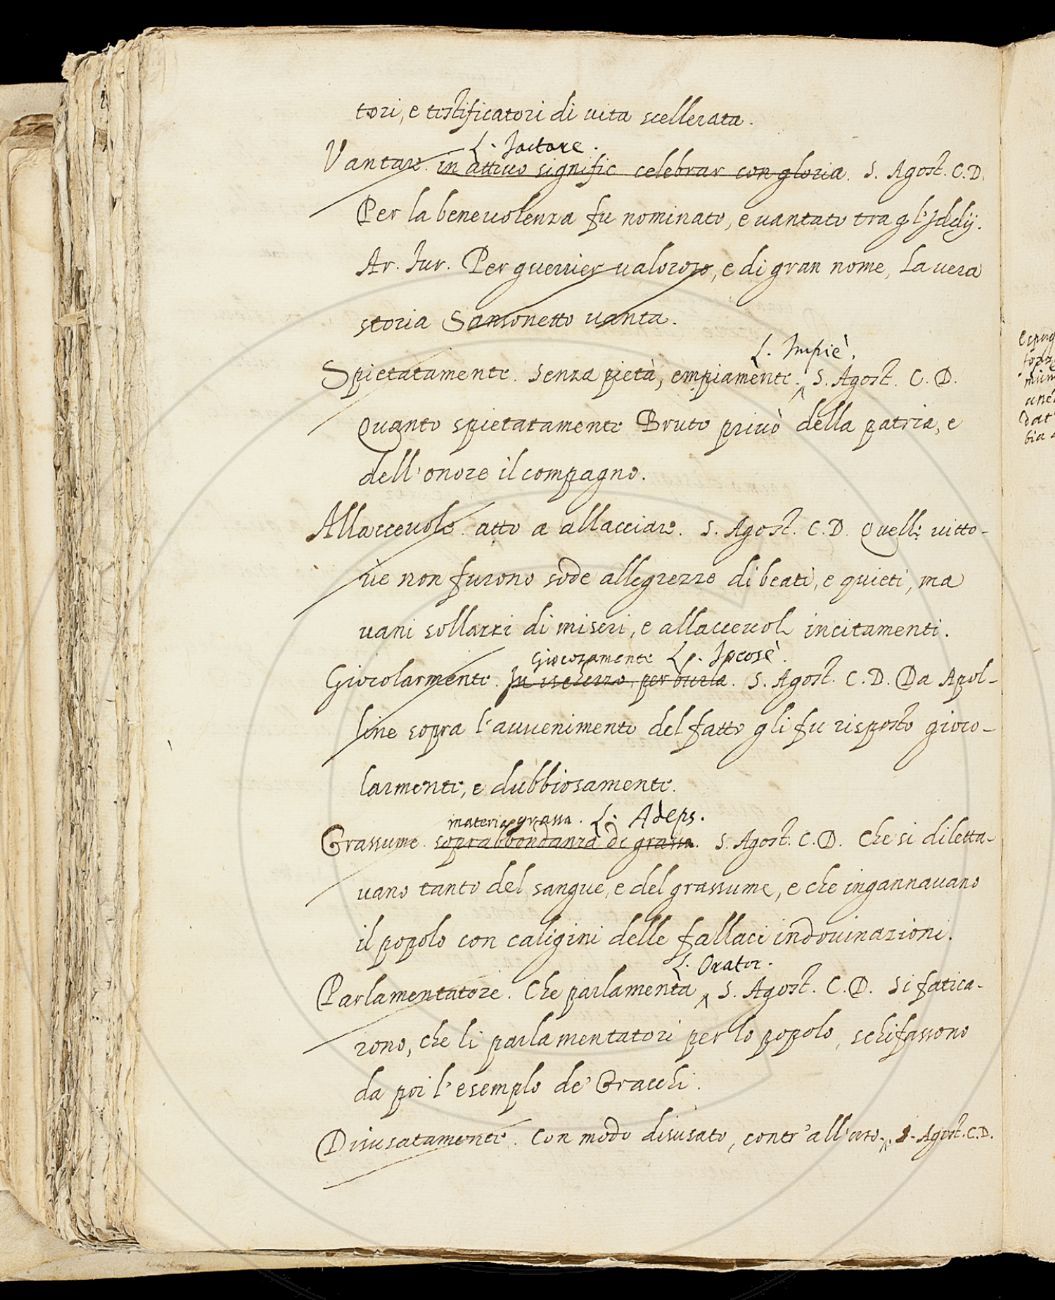 tori, e testificatori di vita scellerata.
L. Jactare.
Vantare. in attivo signific. celebrar con gloria. S. Agost. C.D.
Per la benevolenza fu nominato, e vantato tra gl'Iddij.
Ar. fur. Per guerrier valoroso, e di gran nome, La vera
storia Sansonetto vanta.
L. Impiè.
Spietatamente. Senza pietà, empiamente. S. Agost. C. D.
Quanto spietatamente Bruto privò della patria, e
dell'onore il compagno.
Allaccevole. atto a allacciare. S. Agost. C. D. Quelle vitto-
rie non furono sode allegrezze di beati, e quieti, ma
vani sollazzi di miseri, e allaccevoli incitamenti.
Giocosamente L. Jocosè.
Giocolarmente. In ischerzo, per burla. S. Agost. C. D. Da Apol-
line sopra l'avvenimento del fatto gli fu risposto gioco-
larmente, e dubbiosamente.
materia grassa. L. Adeps.
Grassume. soprabbondanza di grasso. S. Agost. C. D. Che si diletta-
vano tanto del sangue, e del grassume, e che ingannavano
il popolo con caligini delle fallaci indovinazioni.
L. Orator.
Parlamentatore. Che parlamenta S. Agost. C. D. Si fatica-
rono, che li parlamentatori per lo popolo, schifassono
da poi l'esemplo de' Gracchi.
Disusatamente. Con modo disusato, contr'all'uso. S. Agost. C.D.